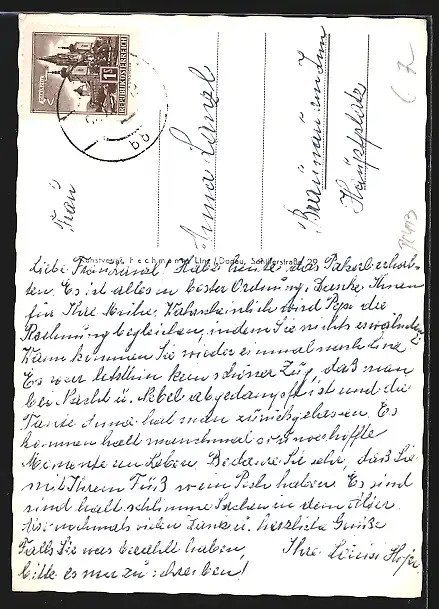 REPUBLIK ÖSTERREICH
Frau
Anna
Braunau am Inn
Hauptplatz
Kunstverlag Fechmann, Linz / Donau, Schillerstraße 29
Liebe Habe heute das Paket erhal-
ten. Es ist alles in bester Ordnung, danke Ihnen
für Ihre Mühe, Wahrscheinlich wird Pepi die
Rechnung begleichen, indem Sie nichts erwähnten
Wann kommen Sie wieder einmal nach Linz
Es war letzthin kein schöner Zug, daß man
bei Nacht u. Nebel abgedampft ist und die
Tante Anna hat man zurückgelassen. Es
kommen halt manchmal unverhoffte
Momente im Leben. Bedaure Sie sehr, daß Sie
mit Ihrem Fuß so ein Pech haben. Es sind
sind halt schlimme Sachen in dem Alter.
Also nochmals vielen Dank u. herzliche Grüße
Falls Sie was bezahlt haben, Ihre Luise Hofer
bitte es mir zu schreiben!